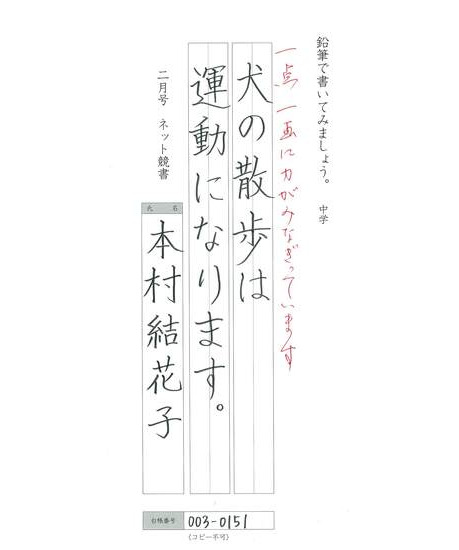 鉛筆で書いてみましょう。 中学
一点一画に力がみなぎっています
犬の散歩は
運動になります。
二月号 ネット競書
氏名
本村結花子
台帳番号 003-0151
(コピー不可)